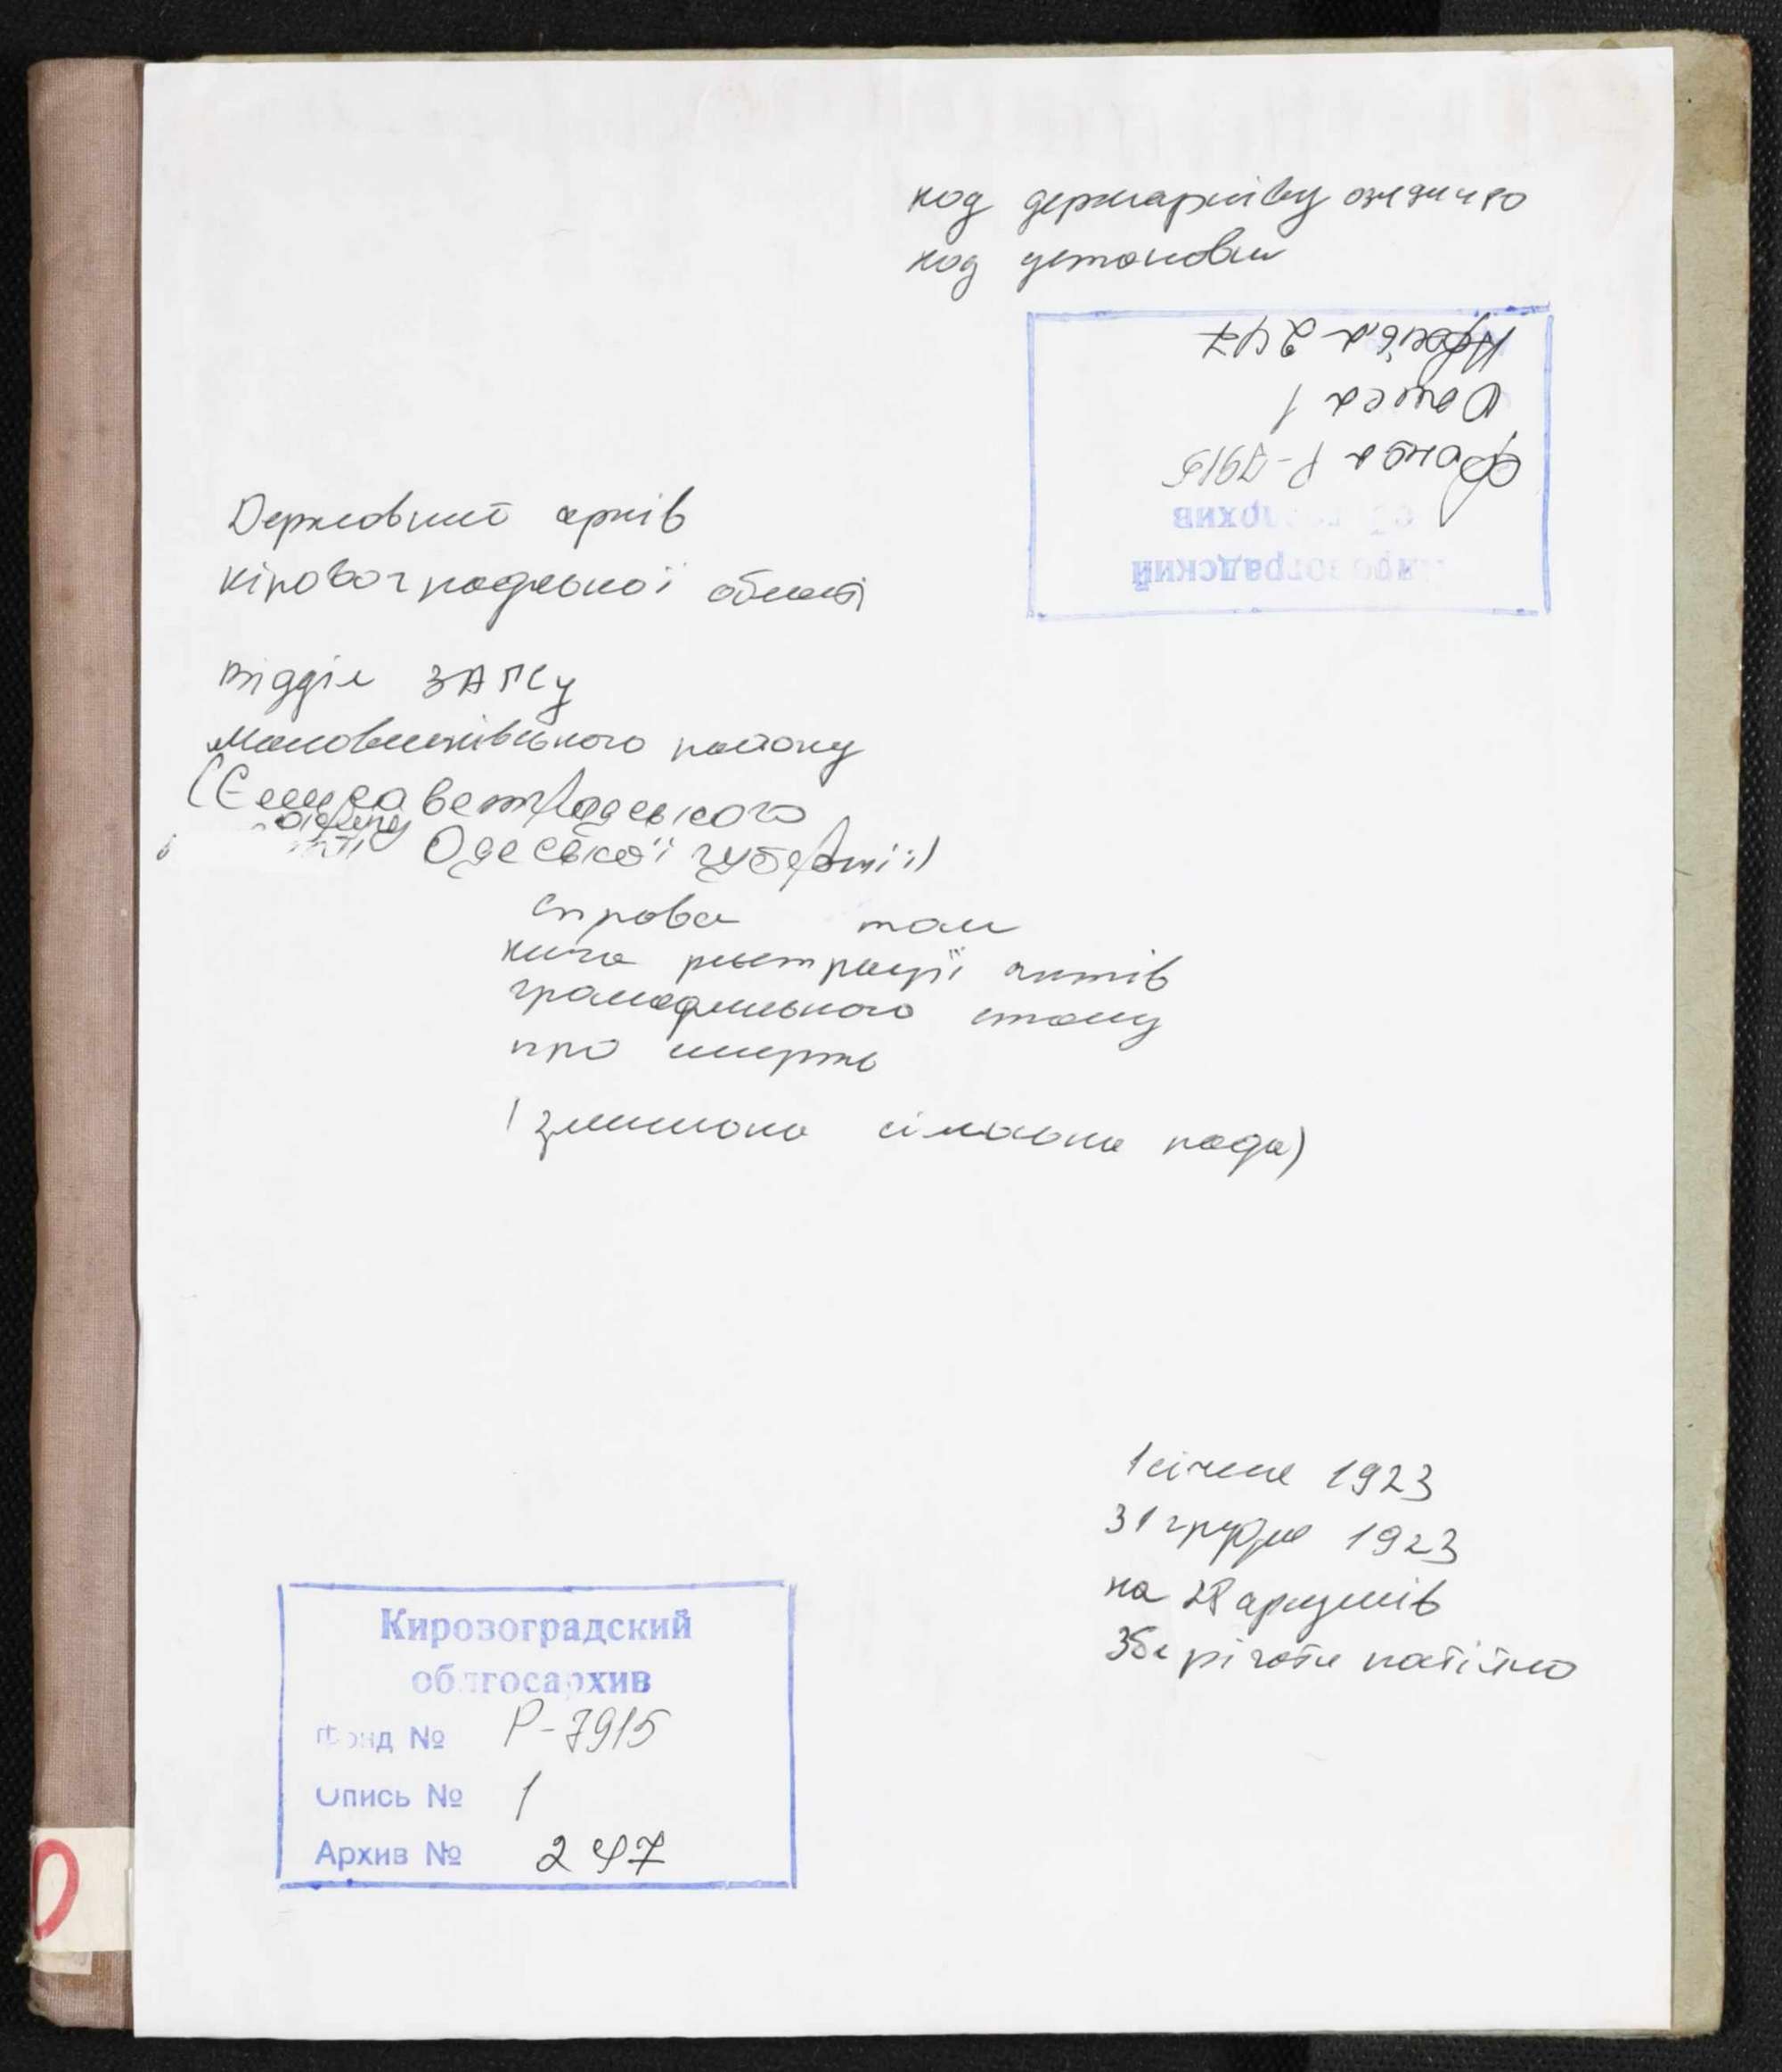 код держархіву
код установи
Кировоградский
облгосархив
Фонд Р-7915
Опись 1
Архів 247
Державний архів
Кіровоградської області
Відділ ЗАГСу
Маловисківського району
(Єлисаветградського
округу
Одеської губернії)
справа том
книга реєстрації актів
громадянського стану
про смерть
сільська рада)
1 січня 1923
31 грудня 1923
на 28 аркушів
Зберігати постійно
Кировоградский
облгосархив
Фонд № Р-7915
Опись № 1
Архив № 247